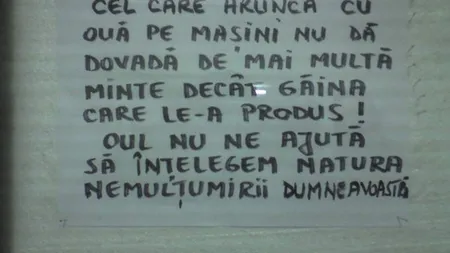 CEL CARE ARUNCĂ CU
OUĂ PE MASINI NU DĂ
DOVADĂ DE MAI MULTĂ
MINTE DECÂT GĂINA
CARE LE-A PRODUS!
OUL NU NE AJUTĂ
SĂ ÎNȚELEGEM NATURA
NEMULȚUMIRII DUMNEAVOASTĂ